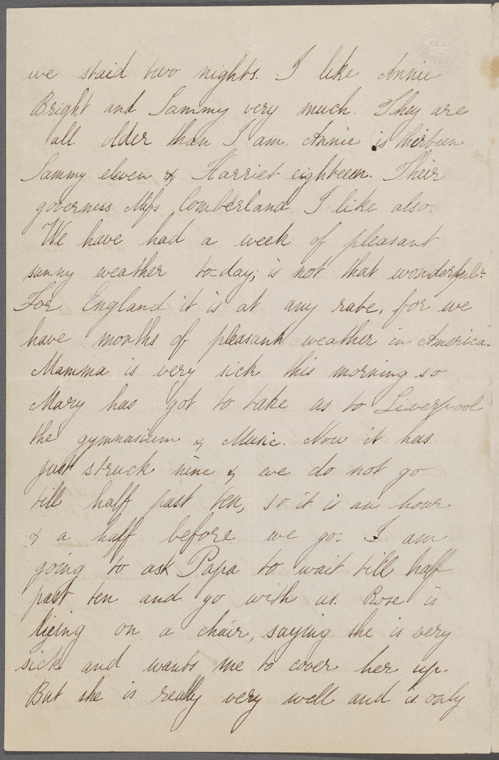 we staid two nights. I like Annie
Bright and Sammy very much. They are
all older than I am. Annie is thirteen
Sammy eleven & Harriet eighteen. Their
governess Miss Comberland I like also.
We have had a week of pleasant
sunny weather to-day; is not that wonderful?
For England it is at any rate, for we
have months of pleasant weather in America.
Mamma is very sick this morning so
Mary has got to take us to Liverpool
the gymnasium & Music. Now it has
just struck nine & we do not go
till half past ten, so it is an hour
& a half before we go. I am
going to ask Papa to wait till half
past ten and go with us. Rose is
lieing on a chair, saying she is very
sick and wants me to cover her up.
But she is really very well and is only